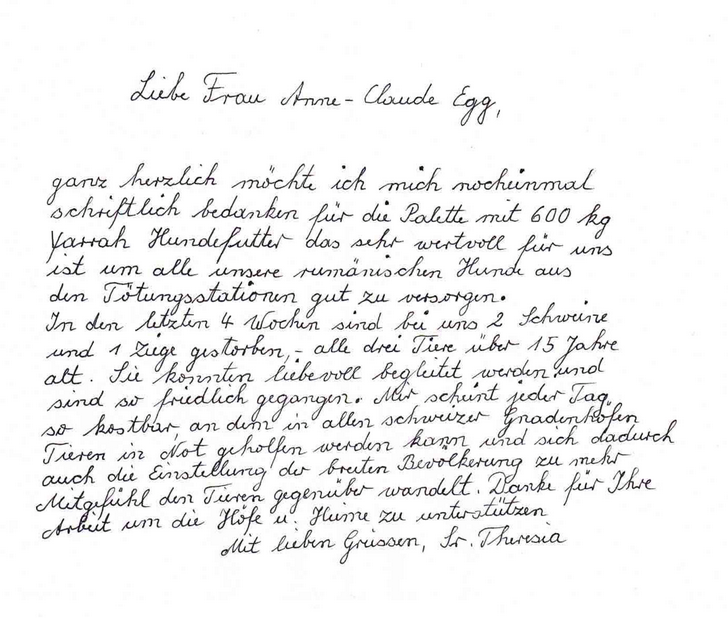 Liebe Frau Anne-Claude Egg,
ganz herzlich möchte ich mich nocheinmal
schriftlich bedanken für die Palette mit 600 kg
Yarrah Hundefutter das sehr wertvoll für uns
ist um alle unsere rumänischen Hunde aus
den Tötungsstationen gut zu versorgen.
In den letzten 4 Wochen sind bei uns 2 Schweine
und 1 Ziege gestorben, - alle drei Tiere über 15 Jahre
alt. Sie konnten liebevoll begleitet werden und
sind so friedlich gegangen. Mir scheint jeder Tag
so kostbar, an dem in allen schweizer Gnadenhöfen
Tieren in Not geholfen werden kann und sich dadurch
auch die Einstellung der breiten Bevölkerung zu mehr
Mitgefühl den Tieren gegenüber wandelt. Danke für Ihre
Arbeit um die Höfe u. Heime zu unterstützen
Mit lieben Grüssen, Sr. Theresia